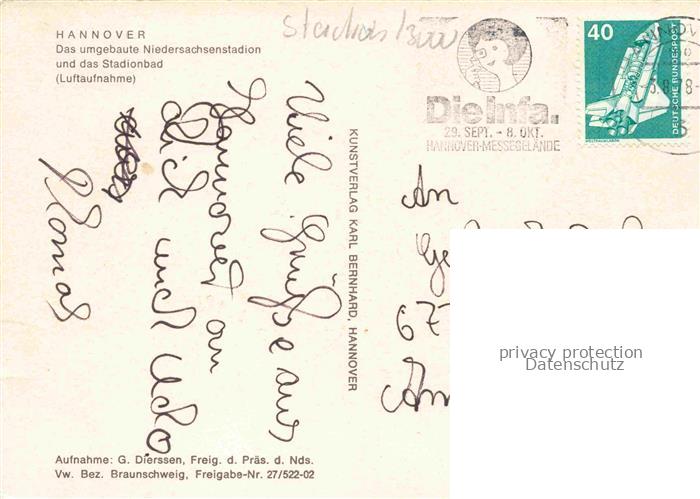 HANNOVER
Das umgebaute Niedersachsenstadion
und das Stadionbad
(Luftaufnahme)
Die Infa.
29. SEPT. - 8. OKT.
HANNOVER-MESSEGELÄNDE
40
DEUTSCHE BUNDESPOST
Viele Grüße aus
Hannover an
Dich und Udo.
Thomas
KUNSTVERLAG KARL BERNHARD, HANNOVER
An
67
privacy protection
Datenschutz
Aufnahme: G. Dierssen, Freig. d. Präs. d. Nds.
Vw. Bez. Braunschweig, Freigabe-Nr. 27/522-02